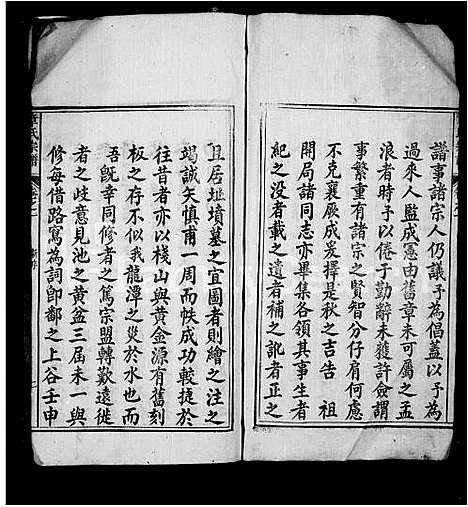 譜事諸宗人仍議予為倡蓋以予為
過來人監成憲由舊章未可屬之孟
浪者時予以倦于勤辭未獲許僉謂
事繁重有諸宗之賢智分仔肩何慮
不克襄厥成爰擇是秋之吉告 祖
開局諸同志亦畢集各領其事生者
紀之没者載之遺者補之訛者正之
且居址墳墓之宜圖者則繪之注之
竭誠矢慎甫一周而帙成功較捷於
往昔者亦以棧山與黄金源有舊刻
板之存不似我龍潭之災於水也而
吾旣幸同修者之篤宗盟轉歎遠徙
者之歧意見池之黄盆三届未一與
修每借路窵為詞卽鄱之上谷壬申
氏宗譜
卷之一